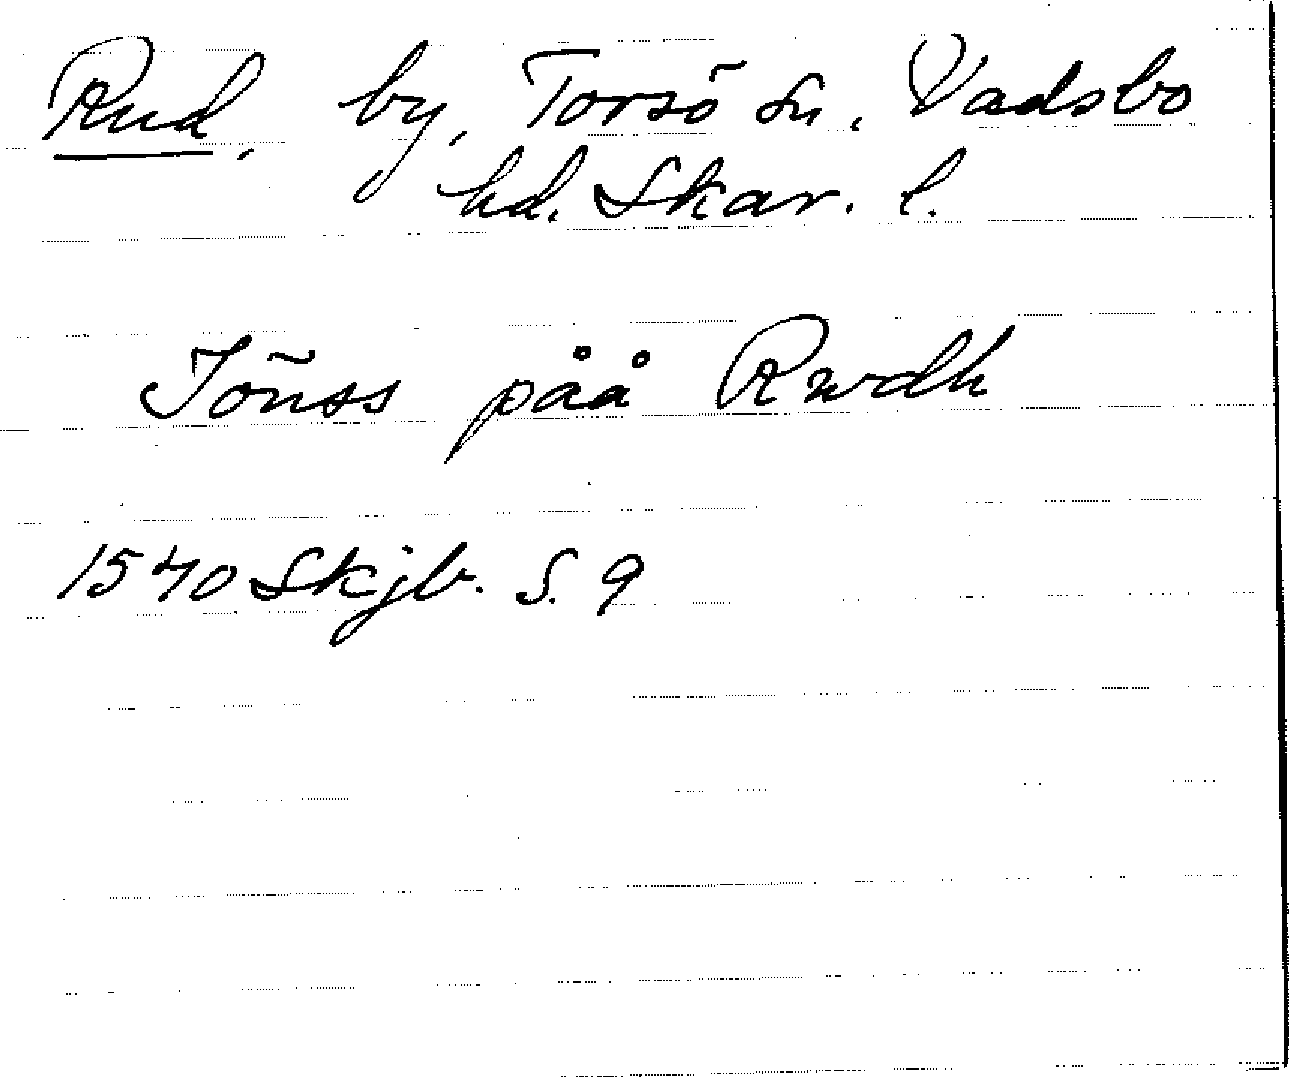 Rud, by, Torsö sn, Vadsbo
hd. Skar. l.
Jönss påå Rwdh
1540 Skjb. S. 9